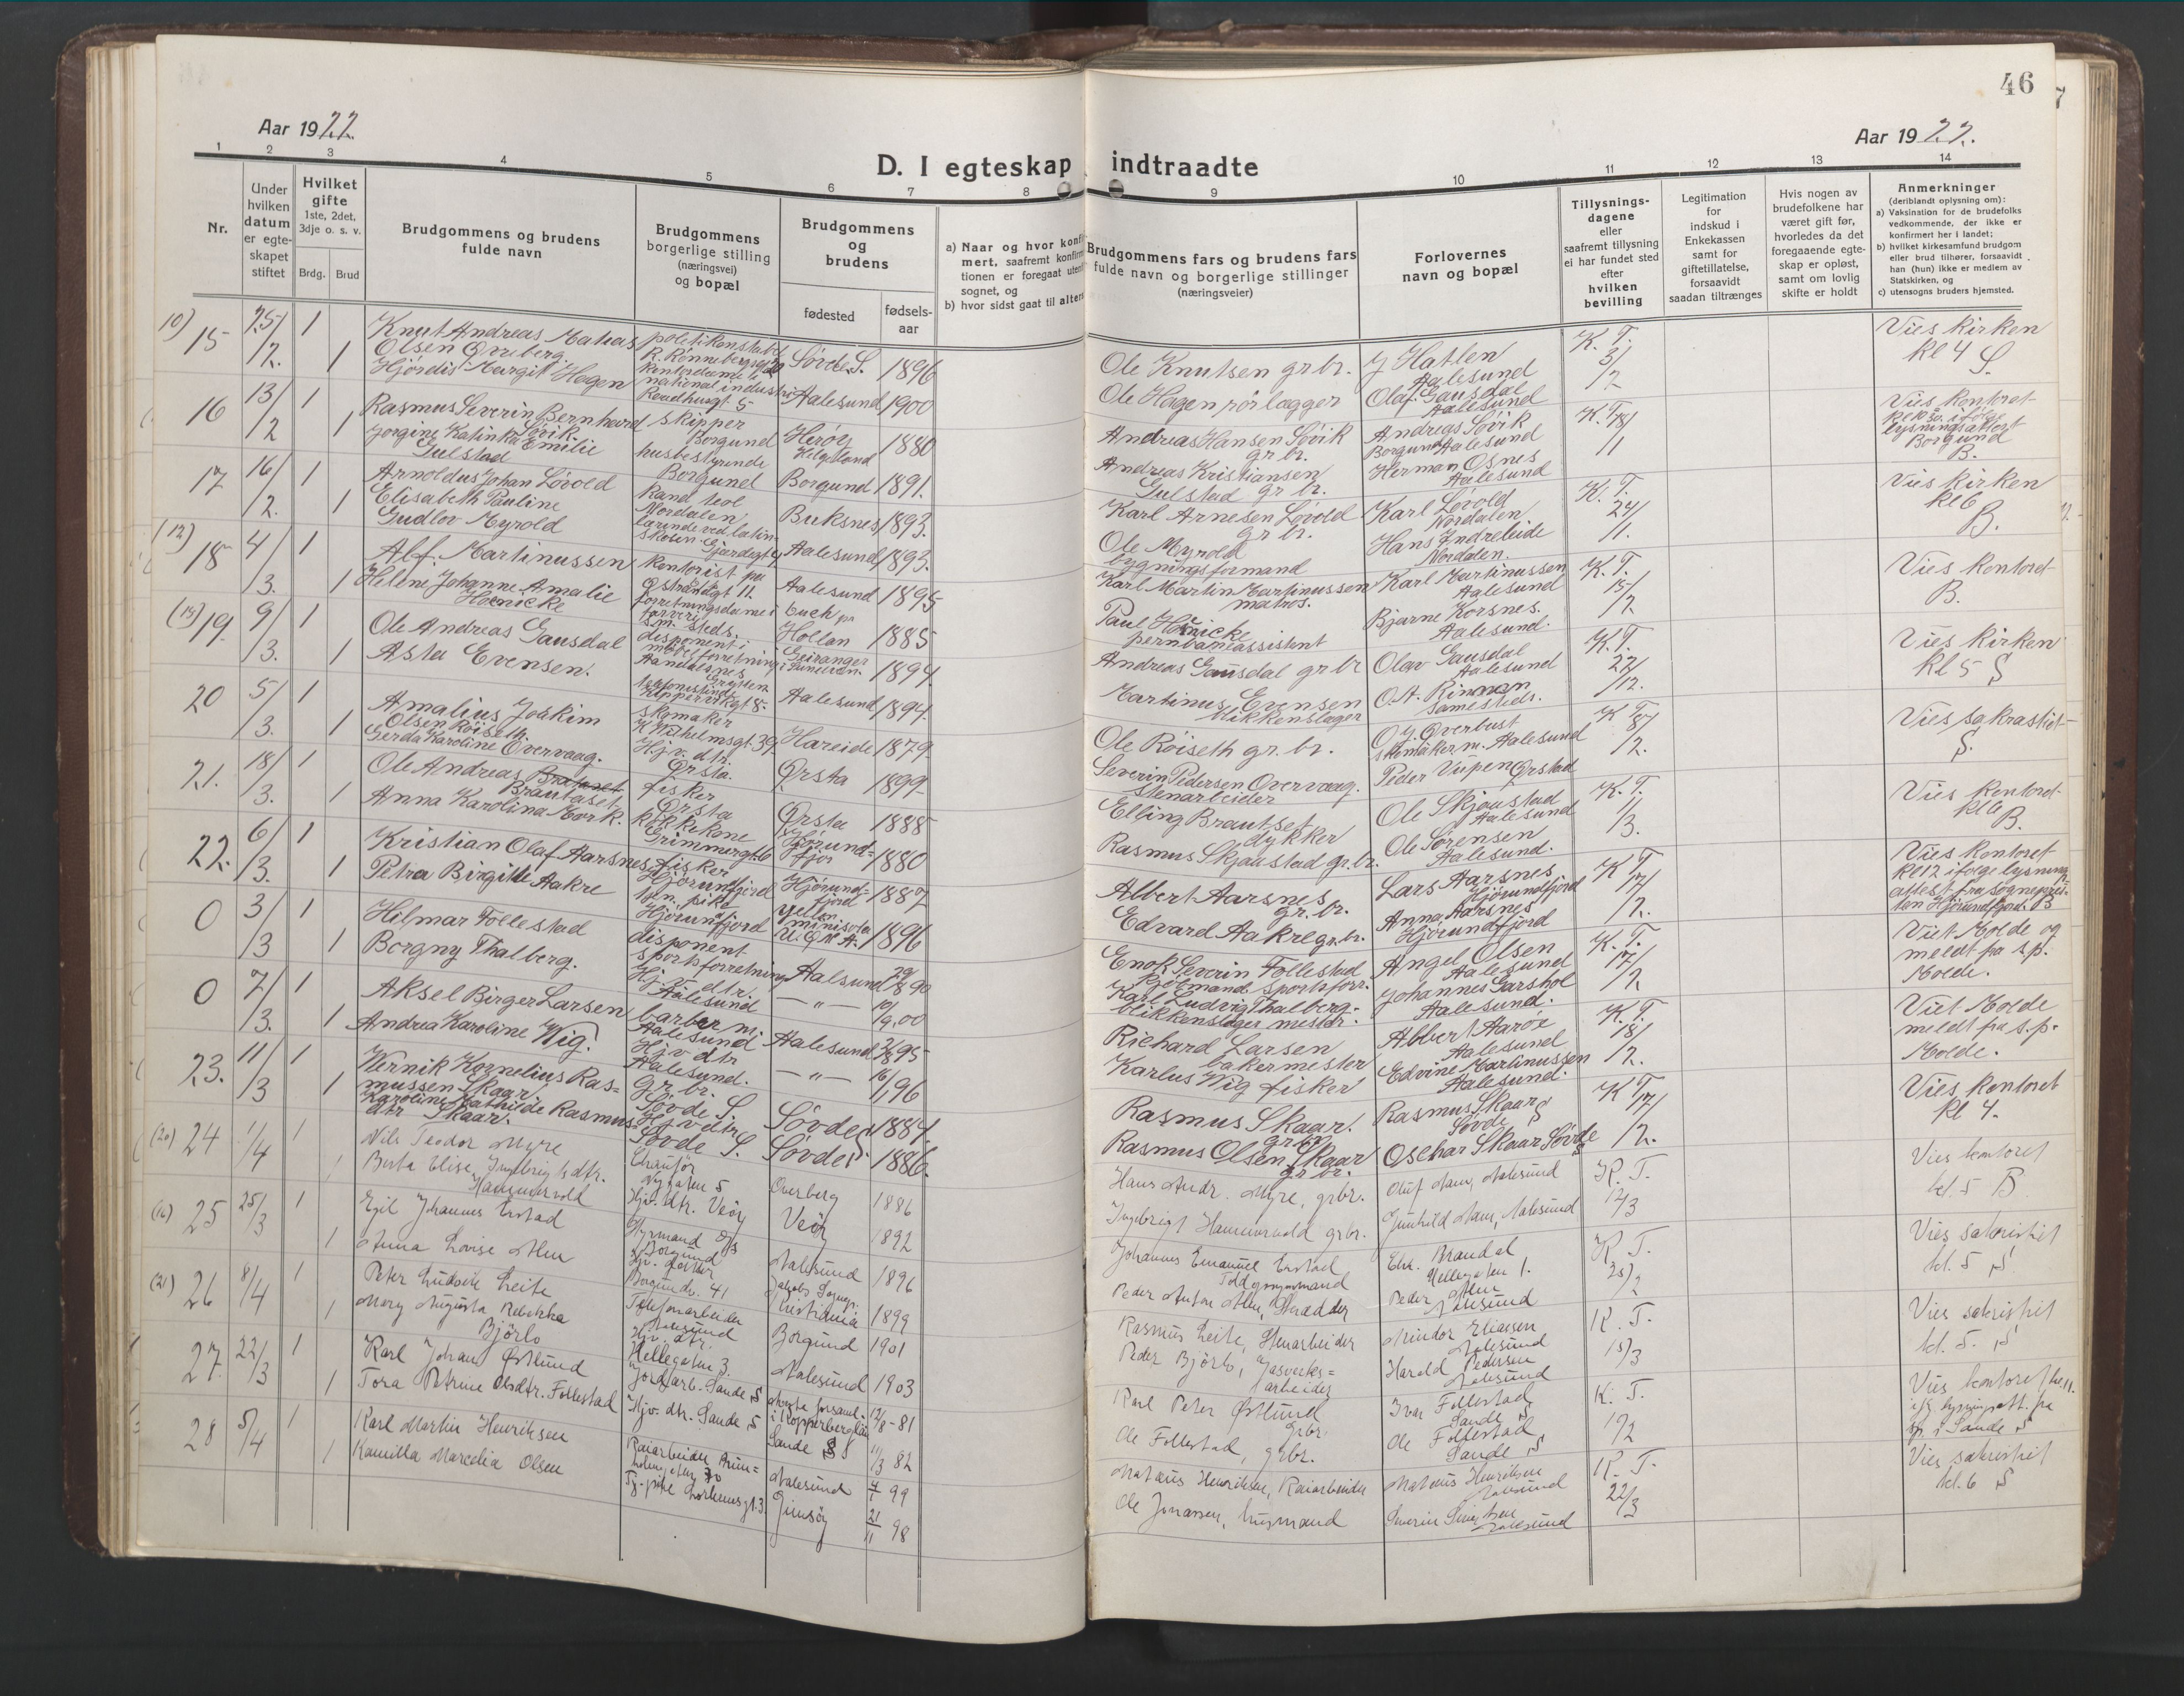 46
Aar 1922.
Aar 1922.
D. I egteskap indtraadte
1 2 3 4 5 6 7 8 9 10 11 12 13 14
Nr.
Under
hvilken
datum
er egte-
skapet
stiftet
Hvilket
gifte
1ste, 2det,
3dje o. s. v.
Brdg. Brud
Brudgommens og brudens
fulde navn
Brudgommens
borgerlige stilling
(næringsvei)
og bopæl
Brudgommens
og
brudens
fødested
fødsels-
aar
a) Naar og hvor konfir
mert, saafremt konfirm
tionen er foregaat uten
sognet, og
b) hvor sidst gaat til alters
Brudgommens fars og brudens fars
fulde navn og borgerlige stillinger
(næringsveier)
Forlovernes
navn og bopæl
Tillysnings-
dagene
eller
saafremt tillysning
ei har fundet sted
efter
hvilken
bevilling
Legitimation
for
indskud i
Enkekassen
samt for
giftetillatelse,
forsaavidt
saadan tiltrænges
Hvis nogen av
brudefolkene har
været gift før,
hvorledes da det
foregaaende egte-
skap er opløst,
samt om lovlig
skifte er holdt
Anmerkninger
(deriblandt oplysning om):
a) Vaksination for de brudefolks
vedkommende, der ikke er
konfirmert her i landet;
b) hvilket kirkesamfund brudgom
eller brud tilhører, forsaavidt
han (hun) ikke er medlem av
Statskirken, og
c) utensogns bruders hjemsted.
10) 15 25/2. 1 1
Knut Andreas Matias
Olsen Orreberg.
Hjördis Margit Hagen
politikonstabel
R. Rönnebergsgt 20
kontordame i
national industri
Raadhusgt. 5
Søvde S. 1896
Aalesund 1900
Ole Knutsen gr br.
Ole Hagen rörlægger
J Hatlen
Aalesund
Olaf Gausdal
Aalesund
K. T.
3/2
Vies kirken
kl 4 S.
16 13/2 1 1
Rasmus Severin Bernhard
Søvik.
Jorgine Katinka Emilie
Gulstad
skipper
Borgund
husbestyrende
Borgund
Herøy
Helgeland 1880
Borgund 1891.
Andreas Hansen Søvik
gr br.
Andreas Kristiansen
Gulstad gr br.
Andreas Søvik
Borgund Aalesund
Herman Osnes
Aalesund
K. T. 18/1
Vies kontoret
ifølge
lysningsattest
Borgund
B.
17 16/2. 1 1
Arnoldus Johan Løvold
Elisabeth Pauline
Gudlov Myrold
Kand teol
Nordalen
lærerinde ved latin-
skolen Gjærdegt 4
Buksnes 1893.
Aalesund 1893.
Karl Arnesen Løvold
gr br.
Ole Myrold
bygningsformand
Karl Løvold
Nordalen
Hans Indreleide
Nordalen.
K. T.
24/1.
Vies kirken
kl 6
B.
(12) 18 4/3. 1 1
Alf. Martinussen
Helene Johanne Amalie
Hoenicke
kontorist
Østrandgt 11.
forretningsdame i
farveri
sm. steds.
Aalesund 1895
Hollan 1885
Karl Martin Martinussen
matros.
Paul Hoenicke
Karl Martinussen
Aalesund
Bjarne Korsnes.
Aalesund.
K. T.
15/2
Vies kontoret
B.
(13) 19. 9/3. 1 1
Ole Andreas Gausdal
Asta Evensen.
disponent i
møbelforretning
Aandalsnes
Grytten
telefonistinde
Kippervikgt 8.
Geiranger
i Sunelven. 1894.
Aalesund 1894.
Andreas Gausdal gr br
Martinus Evensen
blikkenslager
Olav Gausdal
Aalesund
O. A. Rimmen
Samesteds.
K. T.
27/12.
Vies kirken
kl 5 S
20 5/3. 1 1
Amalius Joakim
Olsen Röiseth.
Gerda Karoline Overvaag.
skomaker
K Wilhelmsgt. 39
Hj.v. dtr.
Ørsta.
Hareide 1879.
Ørsta 1899
Ole Röiseth gr. br.
Severin Pedersen Overvaag.
stenarbeider
O J. Overbust
skomakerm. Aalesund
Peder Viipen Ørstad
K T.
8/2.
Vies sakrastiet
S.
21. 18/3. 1 1
Ole Andreas
Brautaset
Anna Karolina Mork.
fisker
Ørsta
kokkekone
Grimmergt. 6
Ørsta 1888
Hjørund-
fjor 1880
Elling Brautset
dykker
Rasmus Skjaastad gr. br.
Ole Skjaastad
Aalesund
Ole Sørensen
Aalesund.
K. T.
1/3.
Vies kontoret
kl 6
B.
22. 6/3. 1 1
Kristian Olaf Aarsnes
Petra Birgitte Aakre
fisker
Hjørundfjord
tjen. pike
Hjørundfjord
Hjørund-
fjord 1887
Albert Aarsnes
gr. br.
Edvard Aakre gr. br.
Lars Aarsnes
Hjørundfjord
Anna Aarsnes
Hjørundfjord
K T.
17/2.
Vies kontoret
kl 12 ifølge lysnings-
attest fra sogneprei-
ten Hjörundfjord. B
0 3/3 1 1
Hilmar Follestad
Borgny Thalberg.
disponent
sportsforretning
Hj.v. dtr.
Aalesund
minisota
U.S.M.A. 1896
Aalesund
Enok Severin Follestad
Sportsforr.
Karl Ludvig Thalberg.
blikkenslager mester.
Angel Olsen
Aalesund
Johannes Garshol
Aalesund.
K. T.
17/2
Viet Molde og
meldt fra s.p.
Molde.
0 7/3. 1 1
Aksel Birger Larsen
Andrea Karoline Wig.
barberm.
Aalesund
Hj.v. dtr
Aalesund.
Aalesund 95
— " — 96
Richard Larsen
bakermester
Karlus Wig fisker
Abbert Aarøe
Aalesund
Edvine Martinussen
Aalesund.
K. T.
18/2.
Viet Molde
meldt fra s.p.
Molde.
23. 11/3 1 1
Wernik Kornelius Ras=
mussen Skaar.
Karoline Mathilde Rasmus
dtr Skaar.
Gr. br.
Søvde S.
Hj v dtr.
Søvde S.
Søvde S. 1884.
Søvde S. 1886.
Rasmus Skaar.
gr br.
Rasmus Olsen Skaar
gr br.
Rasmus Skaar
Søvde S
Oschar Skaar Søvde S
K T.
17/2.
Vies kontoret
kl 4.
(20) 24 1/4 1 1
Nils Teodor Myre
Berta Elise Ingebrigtsdtr.
Hammervold
Chauffør
Nygaten 5
Hjv. dtr. Veøy
Overberg 1886
Veøy 1892
Hans Andr. Myre, grbr.
Ingebrigt Hammervold grbr.
Oluf Mam, Aalesund
Gunhild Mam, Aalesund
K. T.
14/3
Vies kontoret
kl. 5 B
(16) 25 25/3 1 1
Egil Johannes Erstad
Anna Lovise Alm
Styrmand
Borgund
Hjv. datter
Borgundv. 41
Aalesund 1896
Kristiania 1899
Johannes Emanuel Erstad
Toldopsynsmand
Peder Anton Alm, Skrædder
Chr. Brandal
Hellegaten 1.
Peder Alm
Aalesund
K. T.
25/2
Vies sakristiet
kl. 5 S.
(21) 26 8/4 1 1
Peter Ludvik Leite
Mary Augusta Rebekka
Bjørlo
Telefonarbeider
Aalesund
Hjv. dtr.
Hellegaten 3.
Borgund 1901
Aalesund 1903
Rasmus Leite, Stenarbeider
Peder Bjørlo, Gasverks-
arbeider
Mindor Eliassen
Aalesund
Harald Pedersen
Aalesund
K. T.
15/3
Vies sakristiet
kl. 5. S
27. 22/3 1 1
Karl Johan Østlund
Tora Petrine Olsdtr. Follestad
Jordarb. Sande S
Hjv. dtr. Sande S
i Kopperberglän 12/8-81
Sande S 11/3 82
Karl Peter Østlund
Grbr.
Ole Follestad, grbr.
Ivar Follestad
Sande S
Ole Follestad
Sande S
K. T.
1/2
Vies kontoret kl 11.
iflg. lysningsatt. fra
sp. i Sande S
28 5/4 1 1
Karl Martin Henriksen
Kamilla Marcelia Olsen
Kaiarbeider
Tj.pike
Aalesund 4/1 99
Gimsøy 21/11 98
Mataus Henriksen, Kaiarbeider
Ole Johansen, husmand
Mataus Henriksen
Aalesund
Severin
Aalesund
K. T.
22/3
Vies sakristiet
kl. 6 S